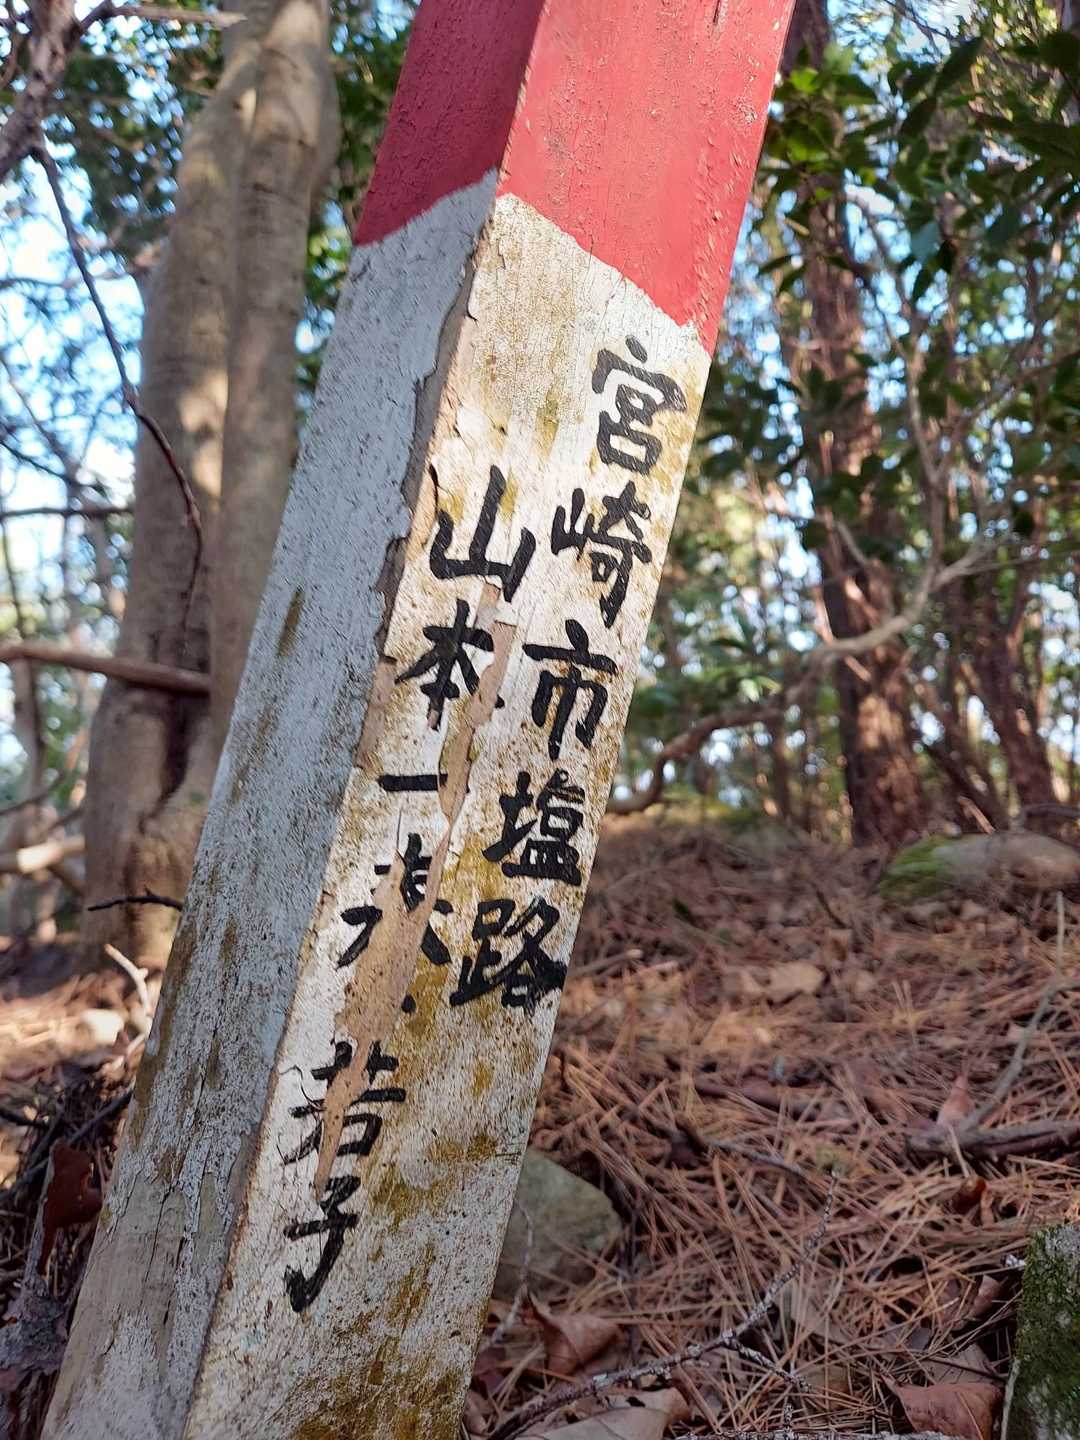 宮崎市塩路
山本一・若子